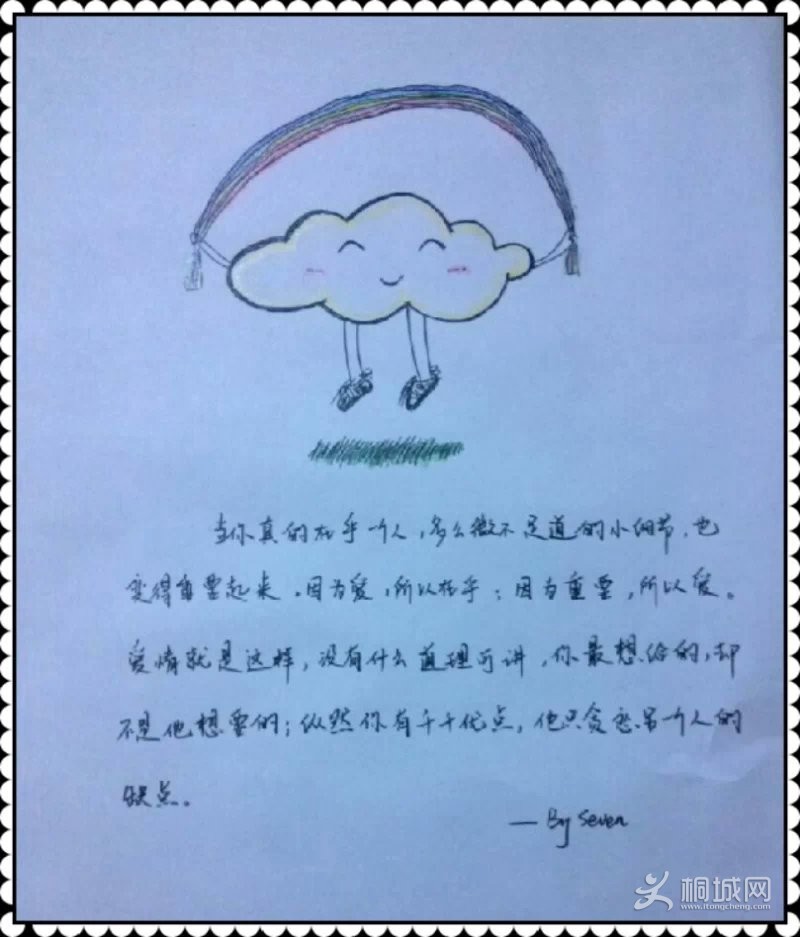 当你真的在乎一个人，多么微不足道的小细节，也
变得重要起来。因为爱，所以在乎；因为重要，所以爱。
爱情就是这样，没有什么道理可讲，你最想给的，却
不是他想要的；纵然你有千千优点，他只贪恋另一个人的
缺点。
— By Seven
桐城网
www.itongcheng.com